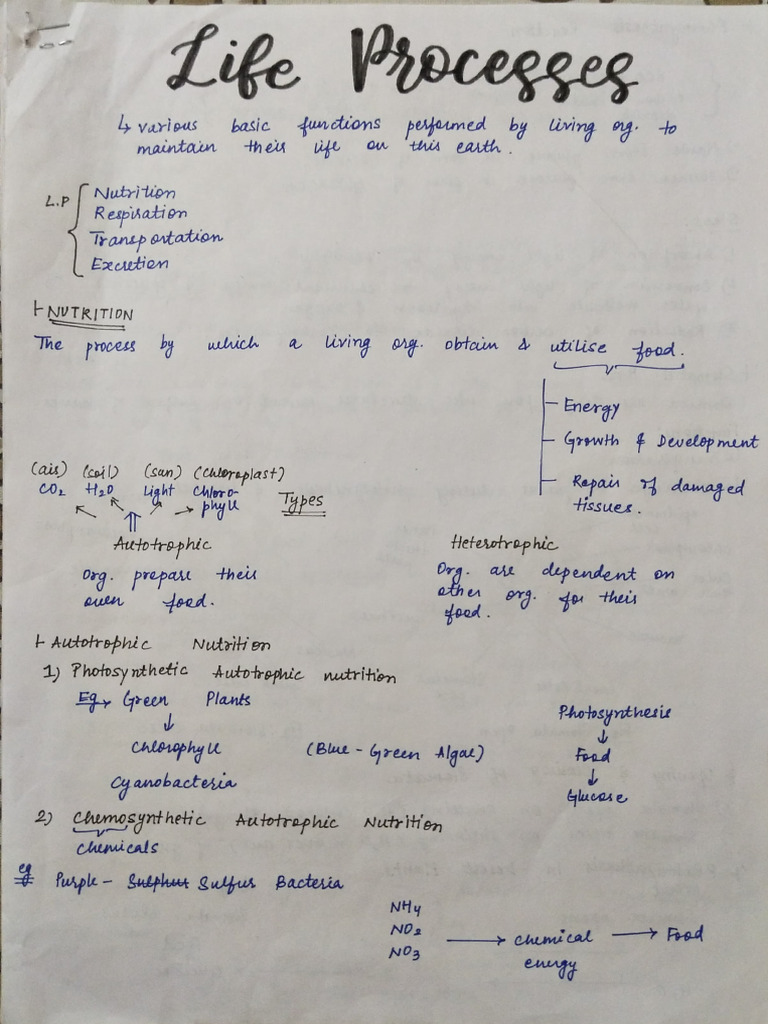 Life Processes
↳ various basic functions performed by living org. to
maintain their life on this earth.
L.P
Nutrition
Respiration
Transportation
Excretion
NUTRITION
The process by which a living org. obtain & utilise food.
Energy
Growth & Development
Repair of damaged
tissues.
(air) (soil) (sun) (chloroplast)
CO2 H2O Light Chloro-
phyll
Types
Autotrophic
Org. prepare their
own food.
Heterotrophic
Org. are dependent on
other org. for their
food.
Autotrophic Nutrition
1) Photosynthetic Autotrophic nutrition
Eg → Green Plants
↓
Chlorophyll (Blue - Green Algae)
Cyanobacteria
Photosynthesis
↓
Food
↓
Glucose
2) Chemosynthetic Autotrophic Nutrition
chemicals
eg Purple - Sulphur Sulfur Bacteria
NH4
NO2
NO3
→ chemical → Food
energy